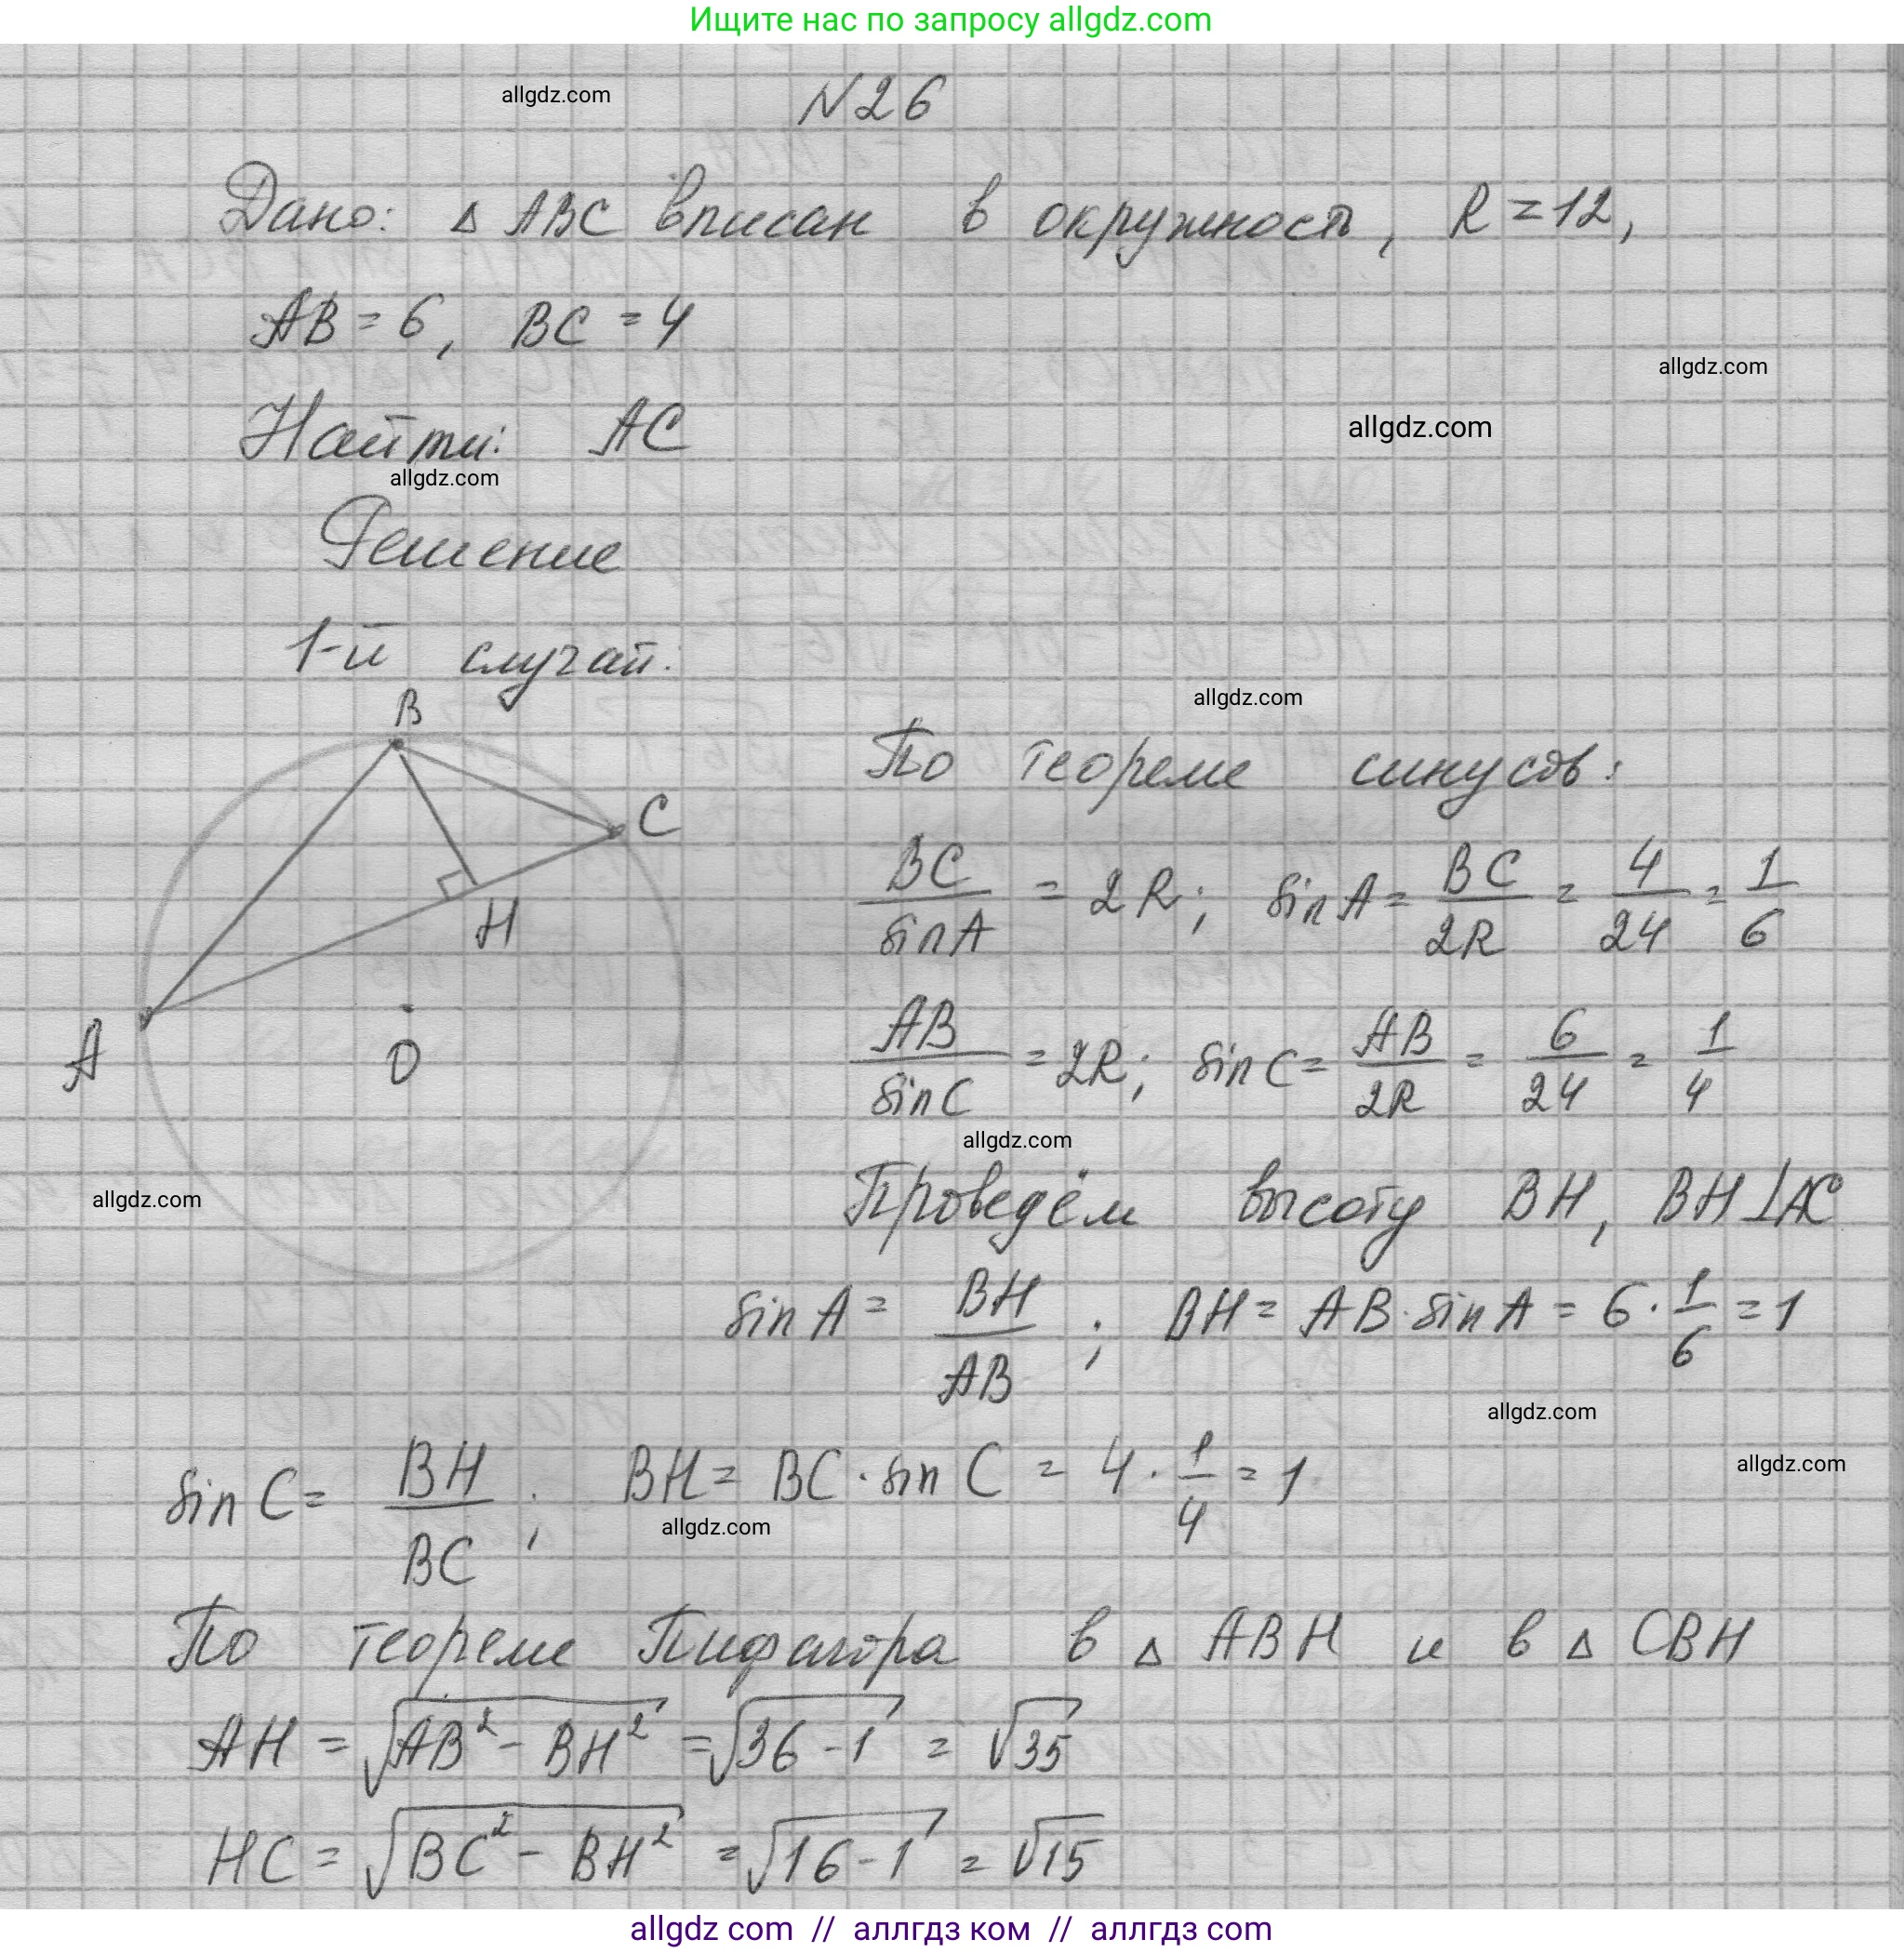 Ищите нас по запросу allgdz.com
allgdz.com
N26
Дано: △ ABC вписан в окружность, R = 12,
AB = 6, BC = 4
allgdz.com
Найти: AC
allgdz.com
allgdz.com
Решение
1-й случай:
allgdz.com
B
C
H
A
O
По теореме синусов:
BC/sinA = 2R; sinA = BC/2R = 4/24 = 1/6
AB/sinC = 2R; sinC = AB/2R = 6/24 = 1/4
allgdz.com
allgdz.com
Проведём высоту BH, BH⊥AC
sinA = BH/AB; BH = AB·sinA = 6·1/6 = 1
allgdz.com
allgdz.com
sinC = BH/BC; BH = BC·sinC = 4·1/4 = 1
allgdz.com
По теореме Пифагора в △ ABH и в △ CBH
AH = √(AB² - BH²) = √(36 - 1) = √35
HC = √(BC² - BH²) = √(16 - 1) = √15
allgdz com // аллгдз ком // аллгдз com